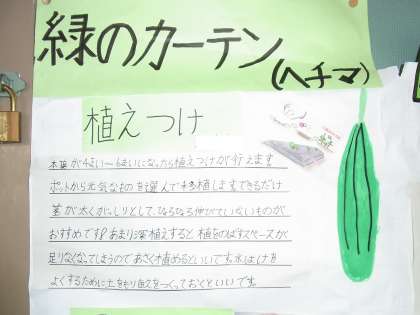 緑のカーテン
(ヘチマ)
植えつけ
本葉が4まい〜6まいになったら植えつけが行えます
ポットから元気なものを選んで移植しますできるだけ
茎が太くがっしりとして、ひょろひょろ伸びていないものが
おすすめです。あまり深植えすると 植をのばすスペースが
足りなくなってしまうのであさく植めるといいです。水はけを
よくするために土をもり台えをつくっておくといいです。